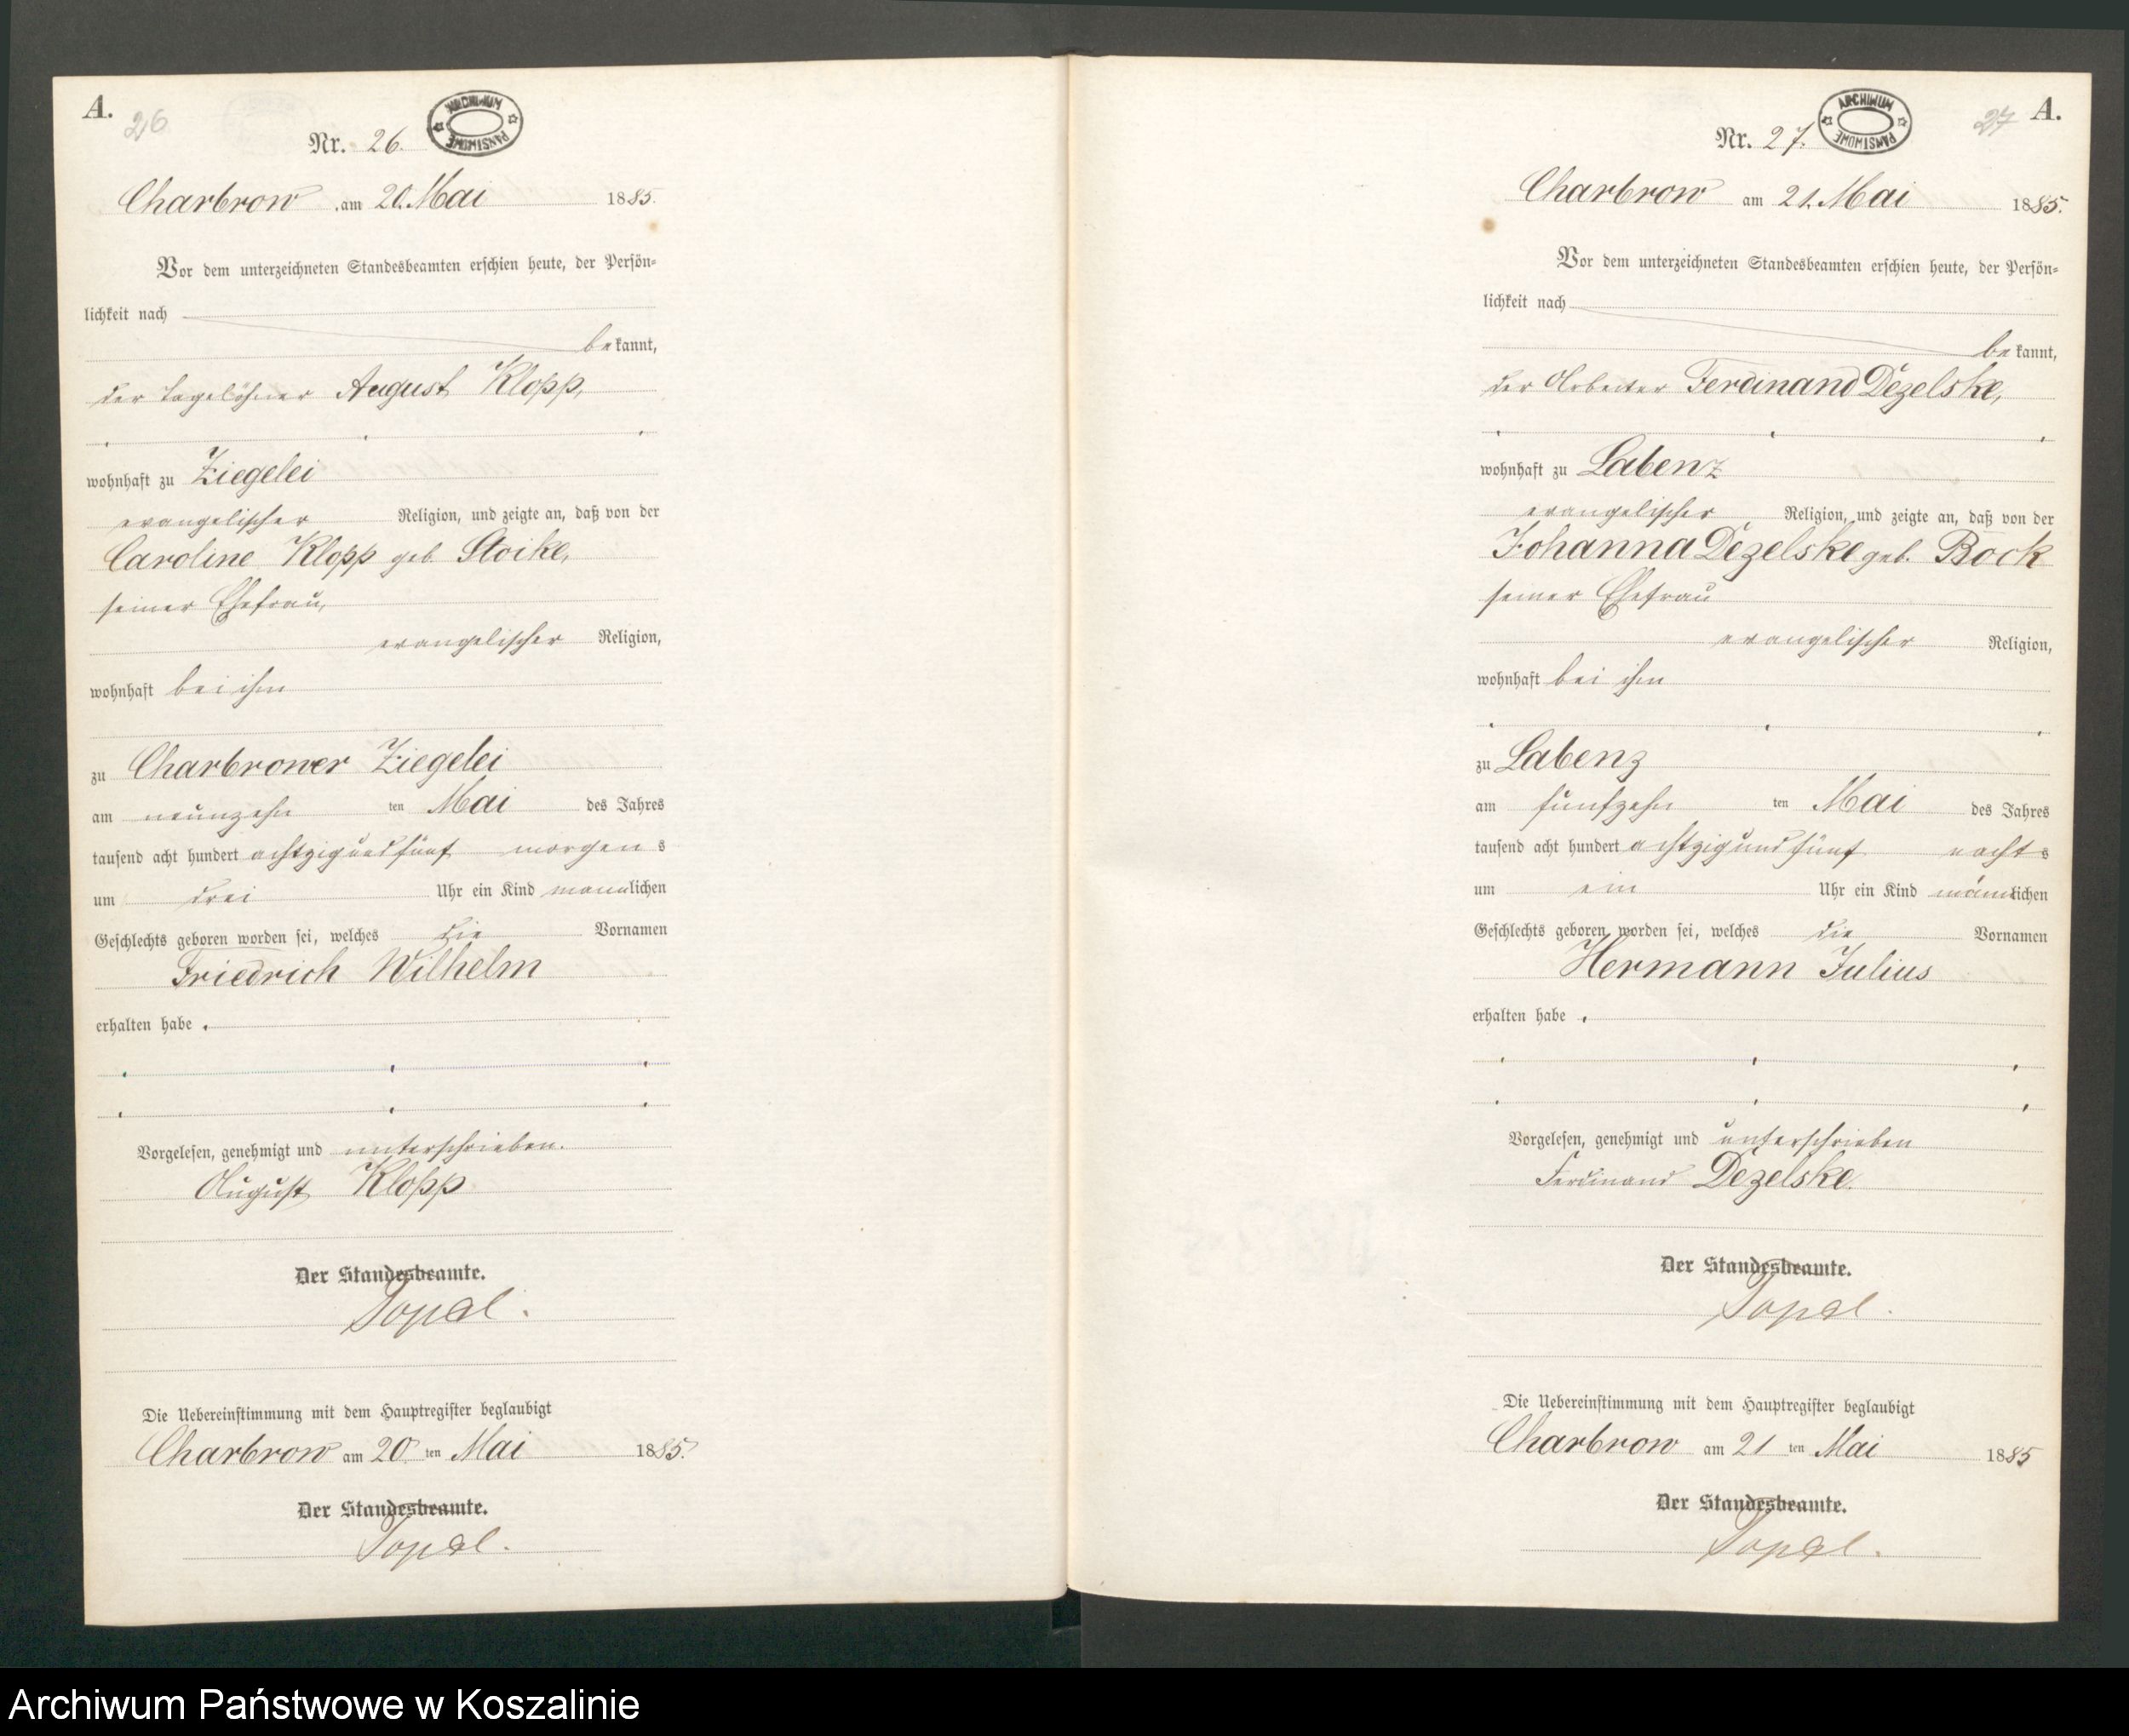 A.
26
Nr. 26.
ARCHIWUM PAŃSTWOWE
Charbrow am 20. Mai 1885.
Vor dem unterzeichneten Standesbeamten erschien heute, der Persön=
lichkeit nach
bekannt,
der Tagelöhner August Klopp,
wohnhaft zu Ziegelei
evangelischer Religion, und zeigte an, daß von der
Caroline Klopp geb. Stoike,
seiner Ehefrau,
evangelischer Religion,
wohnhaft bei ihm
zu Charbrower Ziegelei
am neunzehn ten Mai des Jahres
tausend acht hundert achtzigundfünf morgens
um drei Uhr ein Kind männlichen
Geschlechts geboren worden sei, welches die Vornamen
Friedrich Wilhelm
erhalten habe.
Vorgelesen, genehmigt und unterschrieben.
August Klopp
Der Standesbeamte.
Die Uebereinstimmung mit dem Hauptregister beglaubigt
Charbrow am 20 ten Mai 1885.
Der Standesbeamte.
27
A.
Nr. 27.
ARCHIWUM PAŃSTWOWE
Charbrow am 21. Mai 1885.
Vor dem unterzeichneten Standesbeamten erschien heute, der Persön=
lichkeit nach
bekannt,
der Arbeiter Ferdinand Dezelske,
wohnhaft zu Labenz
evangelischer Religion, und zeigte an, daß von der
Johanna Dezelske geb. Bock
seiner Ehefrau
evangelischer Religion,
wohnhaft bei ihm
zu Labenz
am fünfzehn ten Mai des Jahres
tausend acht hundert achtzigundfünf nachts
um ein Uhr ein Kind männlichen
Geschlechts geboren worden sei, welches die Vornamen
Hermann Julius
erhalten habe.
Vorgelesen, genehmigt und unterschrieben
Ferdinand Dezelske.
Der Standesbeamte.
Die Uebereinstimmung mit dem Hauptregister beglaubigt
Charbrow am 21 ten Mai 1885
Der Standesbeamte.
Archiwum Państwowe w Koszalinie